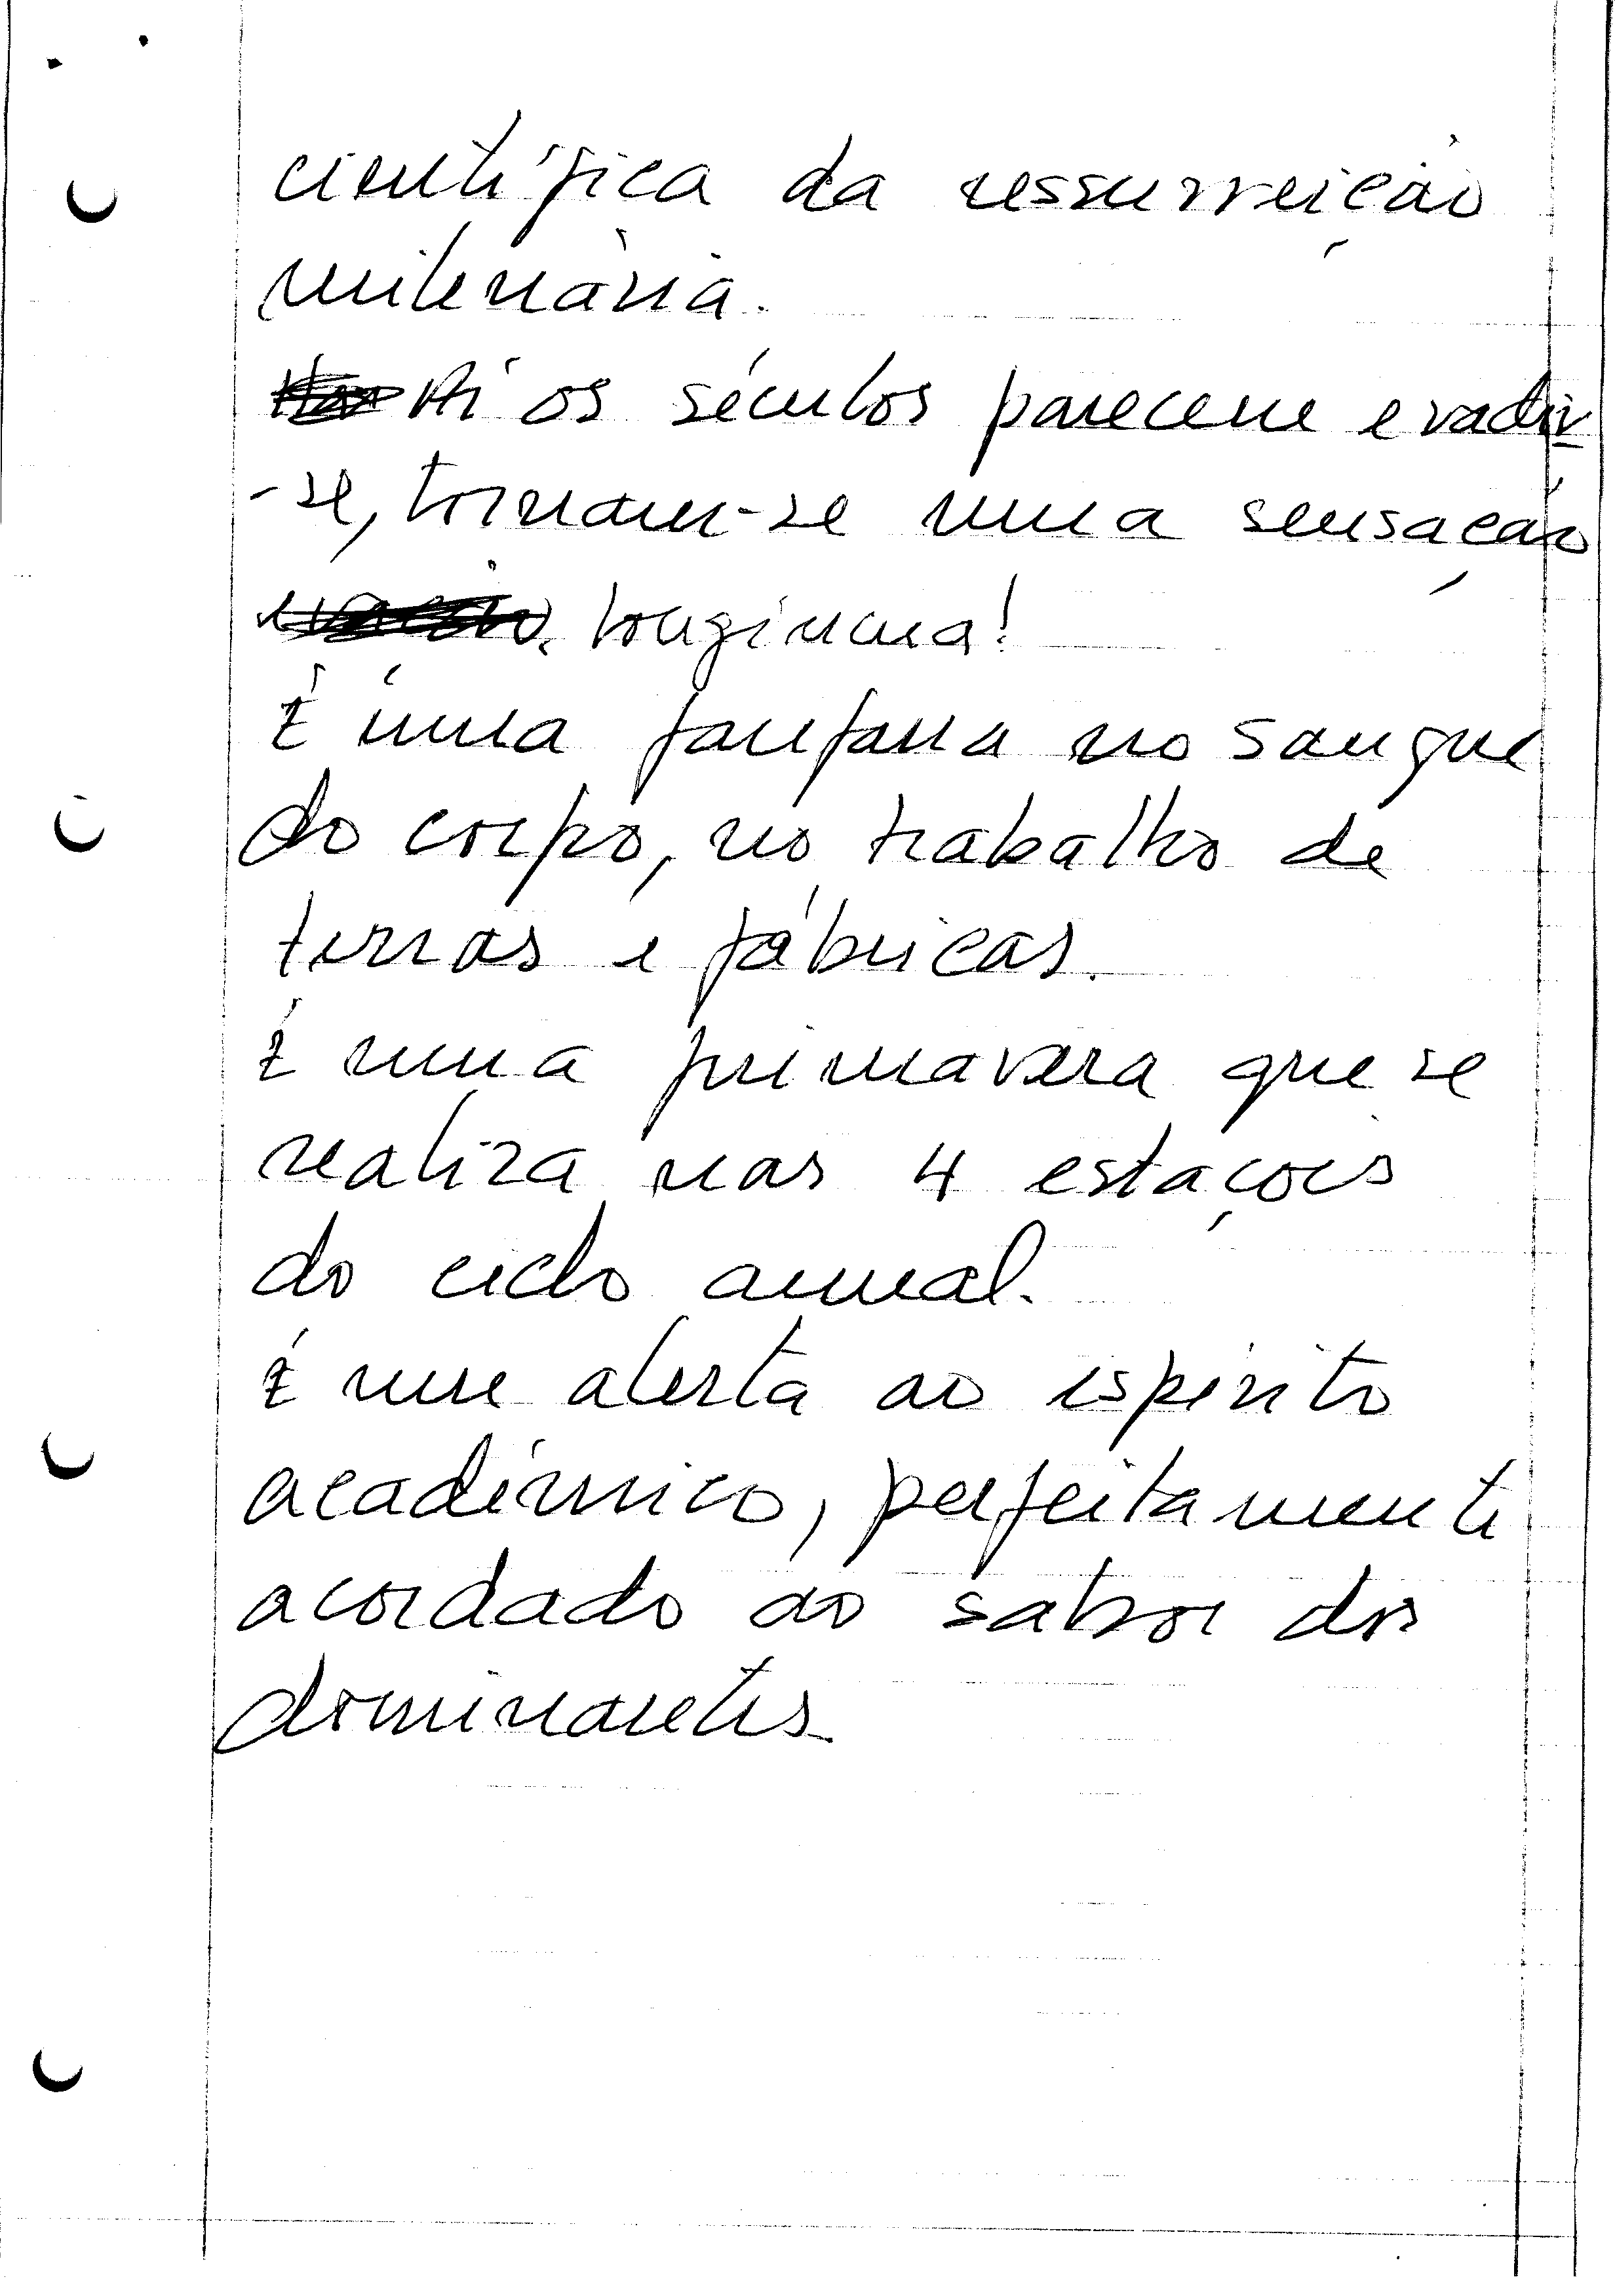 científica da ressurreição
milenária.
Aí os séculos parecem evadir
-se, tornam-se uma sensação
longínqua!
É uma fanfarra no sangue
do corpo, no trabalho de
terras e fábricas.
É uma primavera que se
realiza nas 4 estações
do ciclo anual.
É um alerta ao espírito
académico, perfeitamente
acordado ao sabor dos
dominantes.